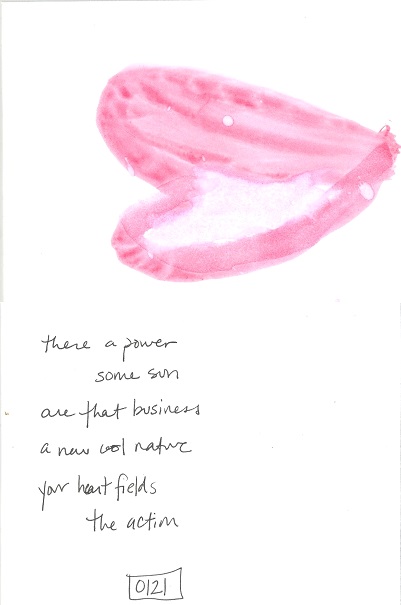 there a power
some sun
are that business
a new nature
your heart fields
the action
0121